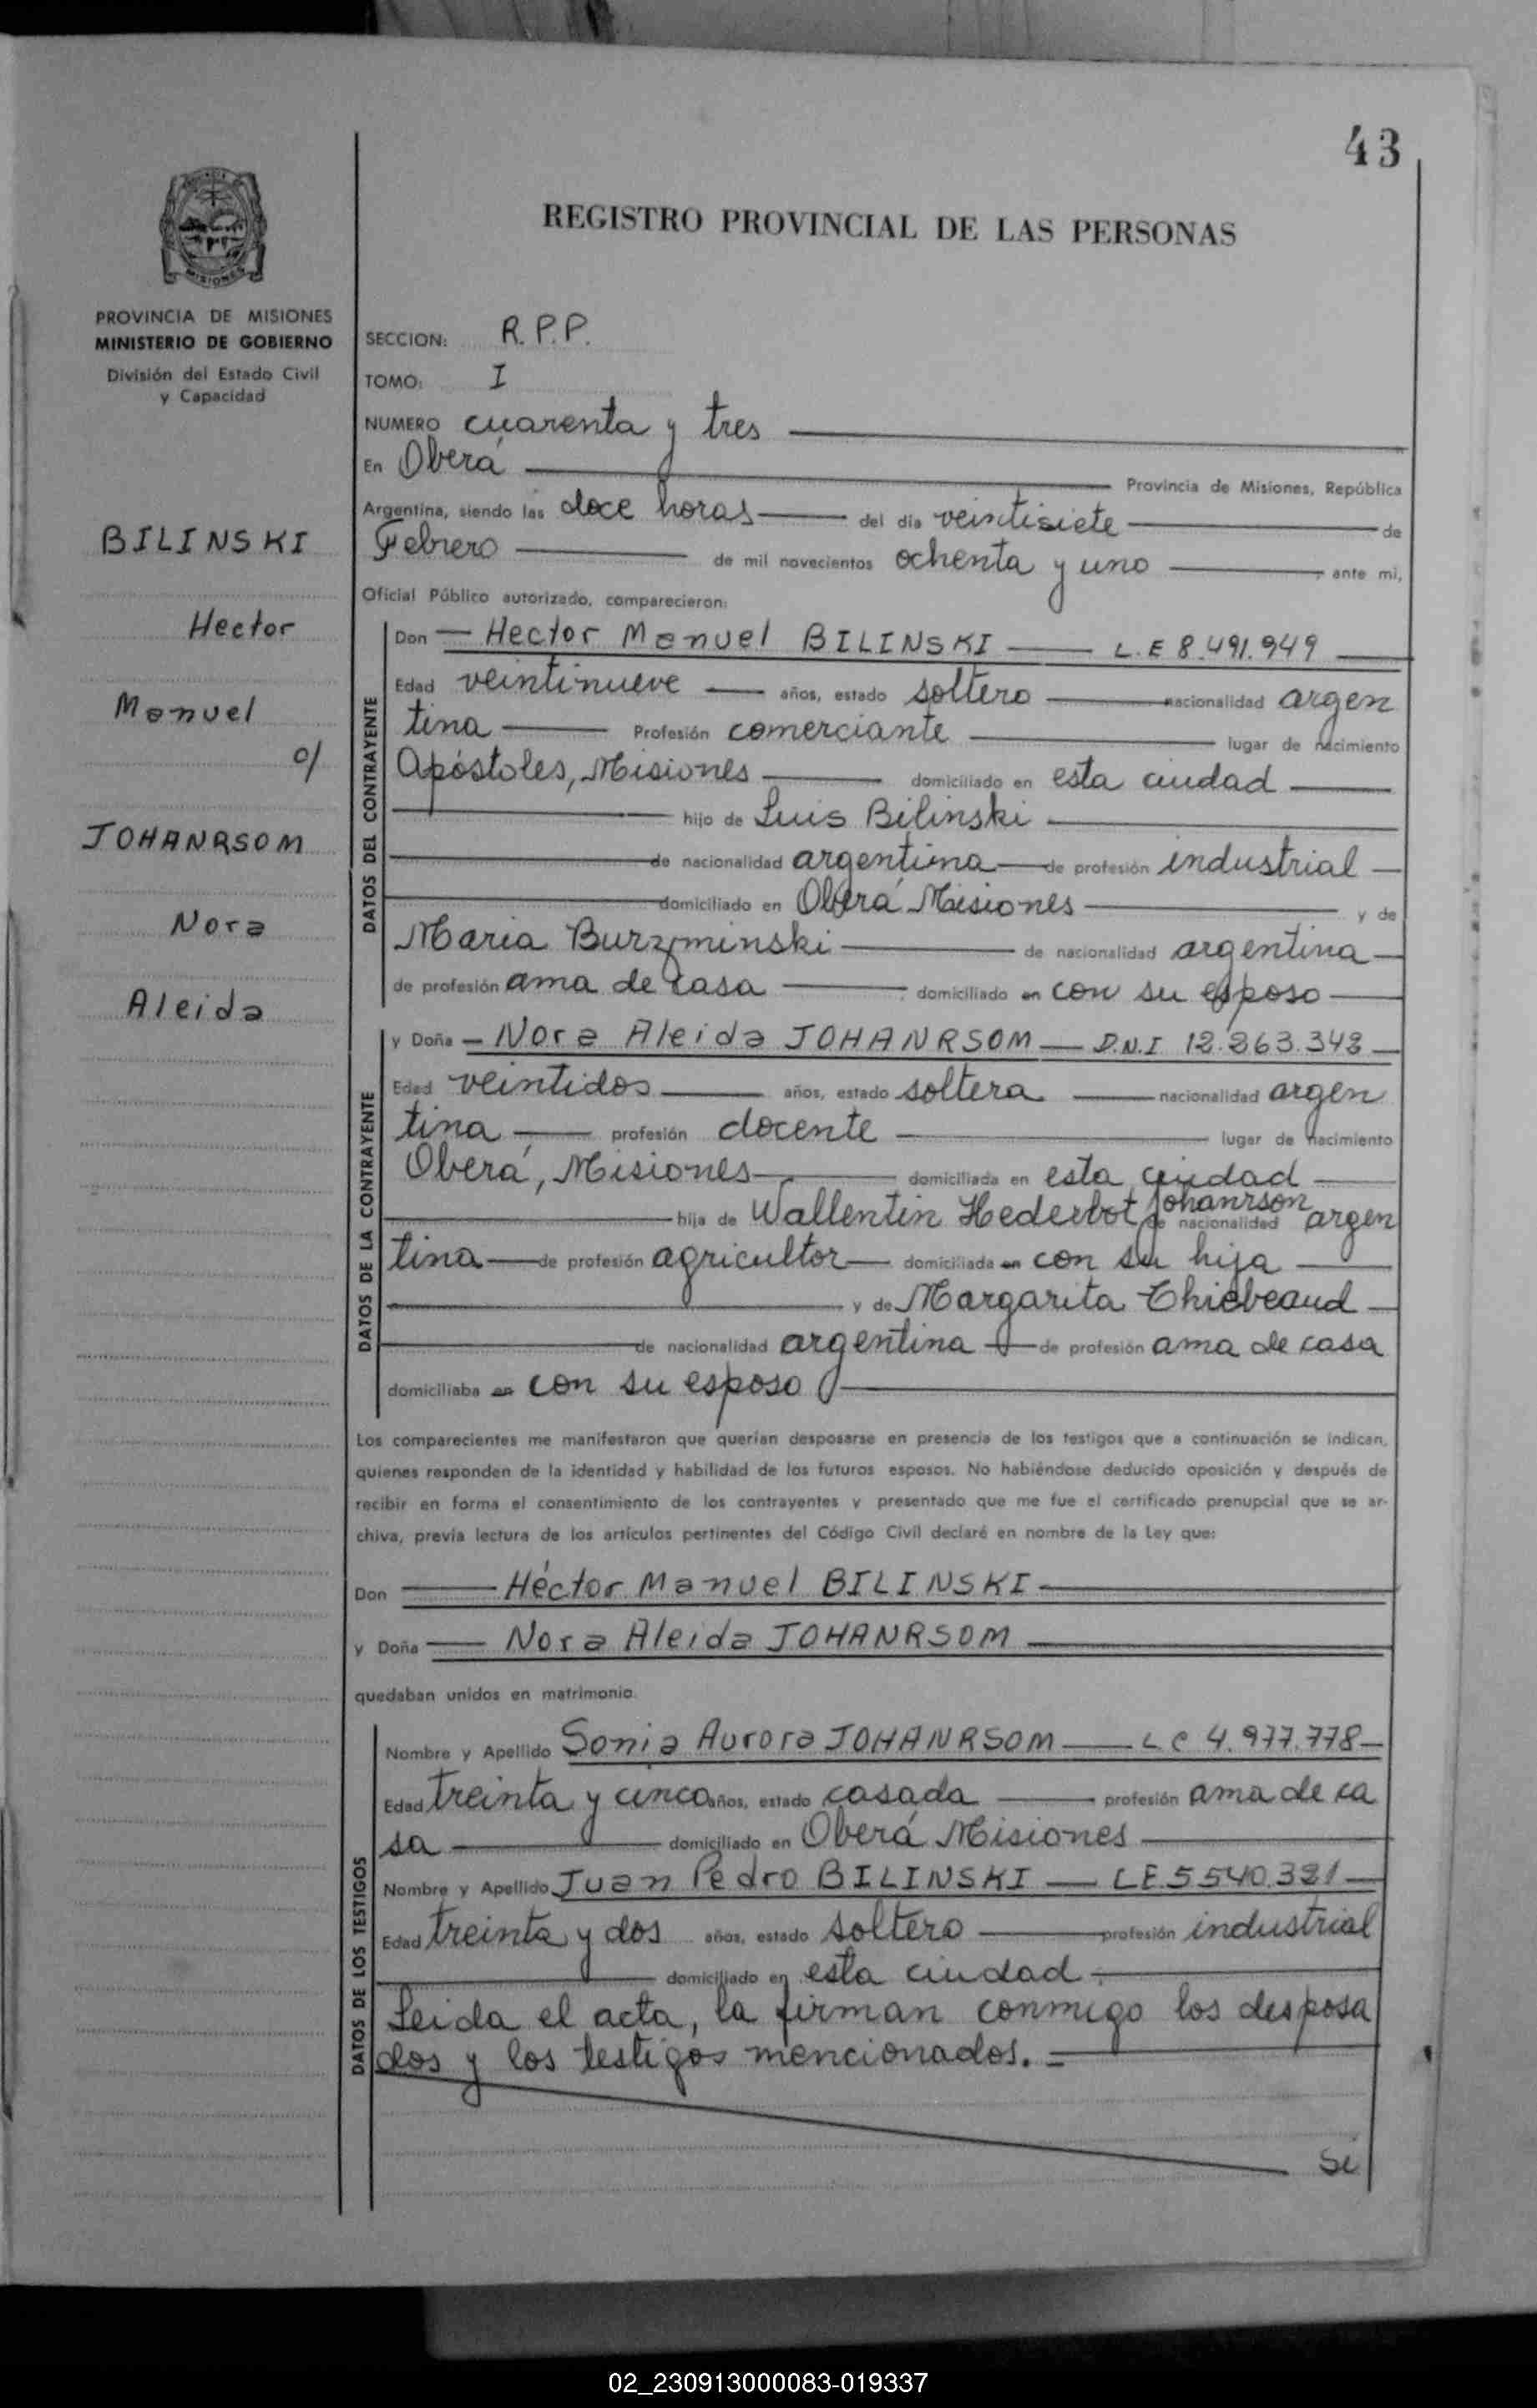 43
REGISTRO PROVINCIAL DE LAS PERSONAS
MISIONES
PROVINCIA DE MISIONES
MINISTERIO DE GOBIERNO
División del Estado Civil
y Capacidad
BILINSKI
Hector
Manuel
c/
JOHANRSOM
Nora
Aleida
SECCION: R.P.P.
TOMO: I
NUMERO cuarenta y tres
En Oberá Provincia de Misiones, República
Argentina, siendo las doce horas del día veintisiete de
Febrero de mil novecientos ochenta y uno ante mi,
Oficial Público autorizado, comparecieron:
DATOS DEL CONTRAYENTE
Don Hector Manuel BILINSKI L.E 8.491.949
Edad veintinueve años, estado soltero nacionalidad argen
tina Profesión comerciante lugar de nacimiento
Apóstoles, Misiones domiciliado en esta ciudad
hijo de Luis Bilinski
de nacionalidad argentina de profesión industrial
domiciliado en Oberá Misiones y de
Maria Burzminski de nacionalidad argentina
de profesión ama de casa domiciliado en con su esposo
DATOS DE LA CONTRAYENTE
y Doña Nora Aleida JOHANRSOM D.N.I 12.263.342
Edad veintidos años, estado soltera nacionalidad argen
tina profesión docente lugar de nacimiento
Oberá, Misiones domiciliada en esta ciudad
hija de Wallentin Hederbot Johanrson de nacionalidad argen
tina de profesión agricultor domiciliada en con su hija
y de Margarita Thiebeaud
de nacionalidad argentina de profesión ama de casa
domiciliaba en con su esposo
Los comparecientes me manifestaron que querían desposarse en presencia de los testigos que a continuación se indican,
quienes responden de la identidad y habilidad de los futuros esposos. No habiéndose deducido oposición y después de
recibir en forma el consentimiento de los contrayentes y presentado que me fue el certificado prenupcial que se ar-
chiva, previa lectura de los artículos pertinentes del Código Civil declaré en nombre de la Ley que:
Don Héctor Manuel BILINSKI
y Doña Nora Aleida JOHANRSOM
quedaban unidos en matrimonio.
DATOS DE LOS TESTIGOS
Nombre y Apellido Sonia Aurora JOHANRSOM LC 4.977.778
Edad treinta y cinco años, estado casada profesión ama de ca
sa domiciliado en Oberá Misiones
Nombre y Apellido Juan Pedro BILINSKI LE 5540.321
Edad treinta y dos años, estado soltero profesión industrial
domiciliado en esta ciudad.
Leida el acta, la firman conmigo los desposa
dos y los testigos mencionados.=
Si
02_230913000083-019337